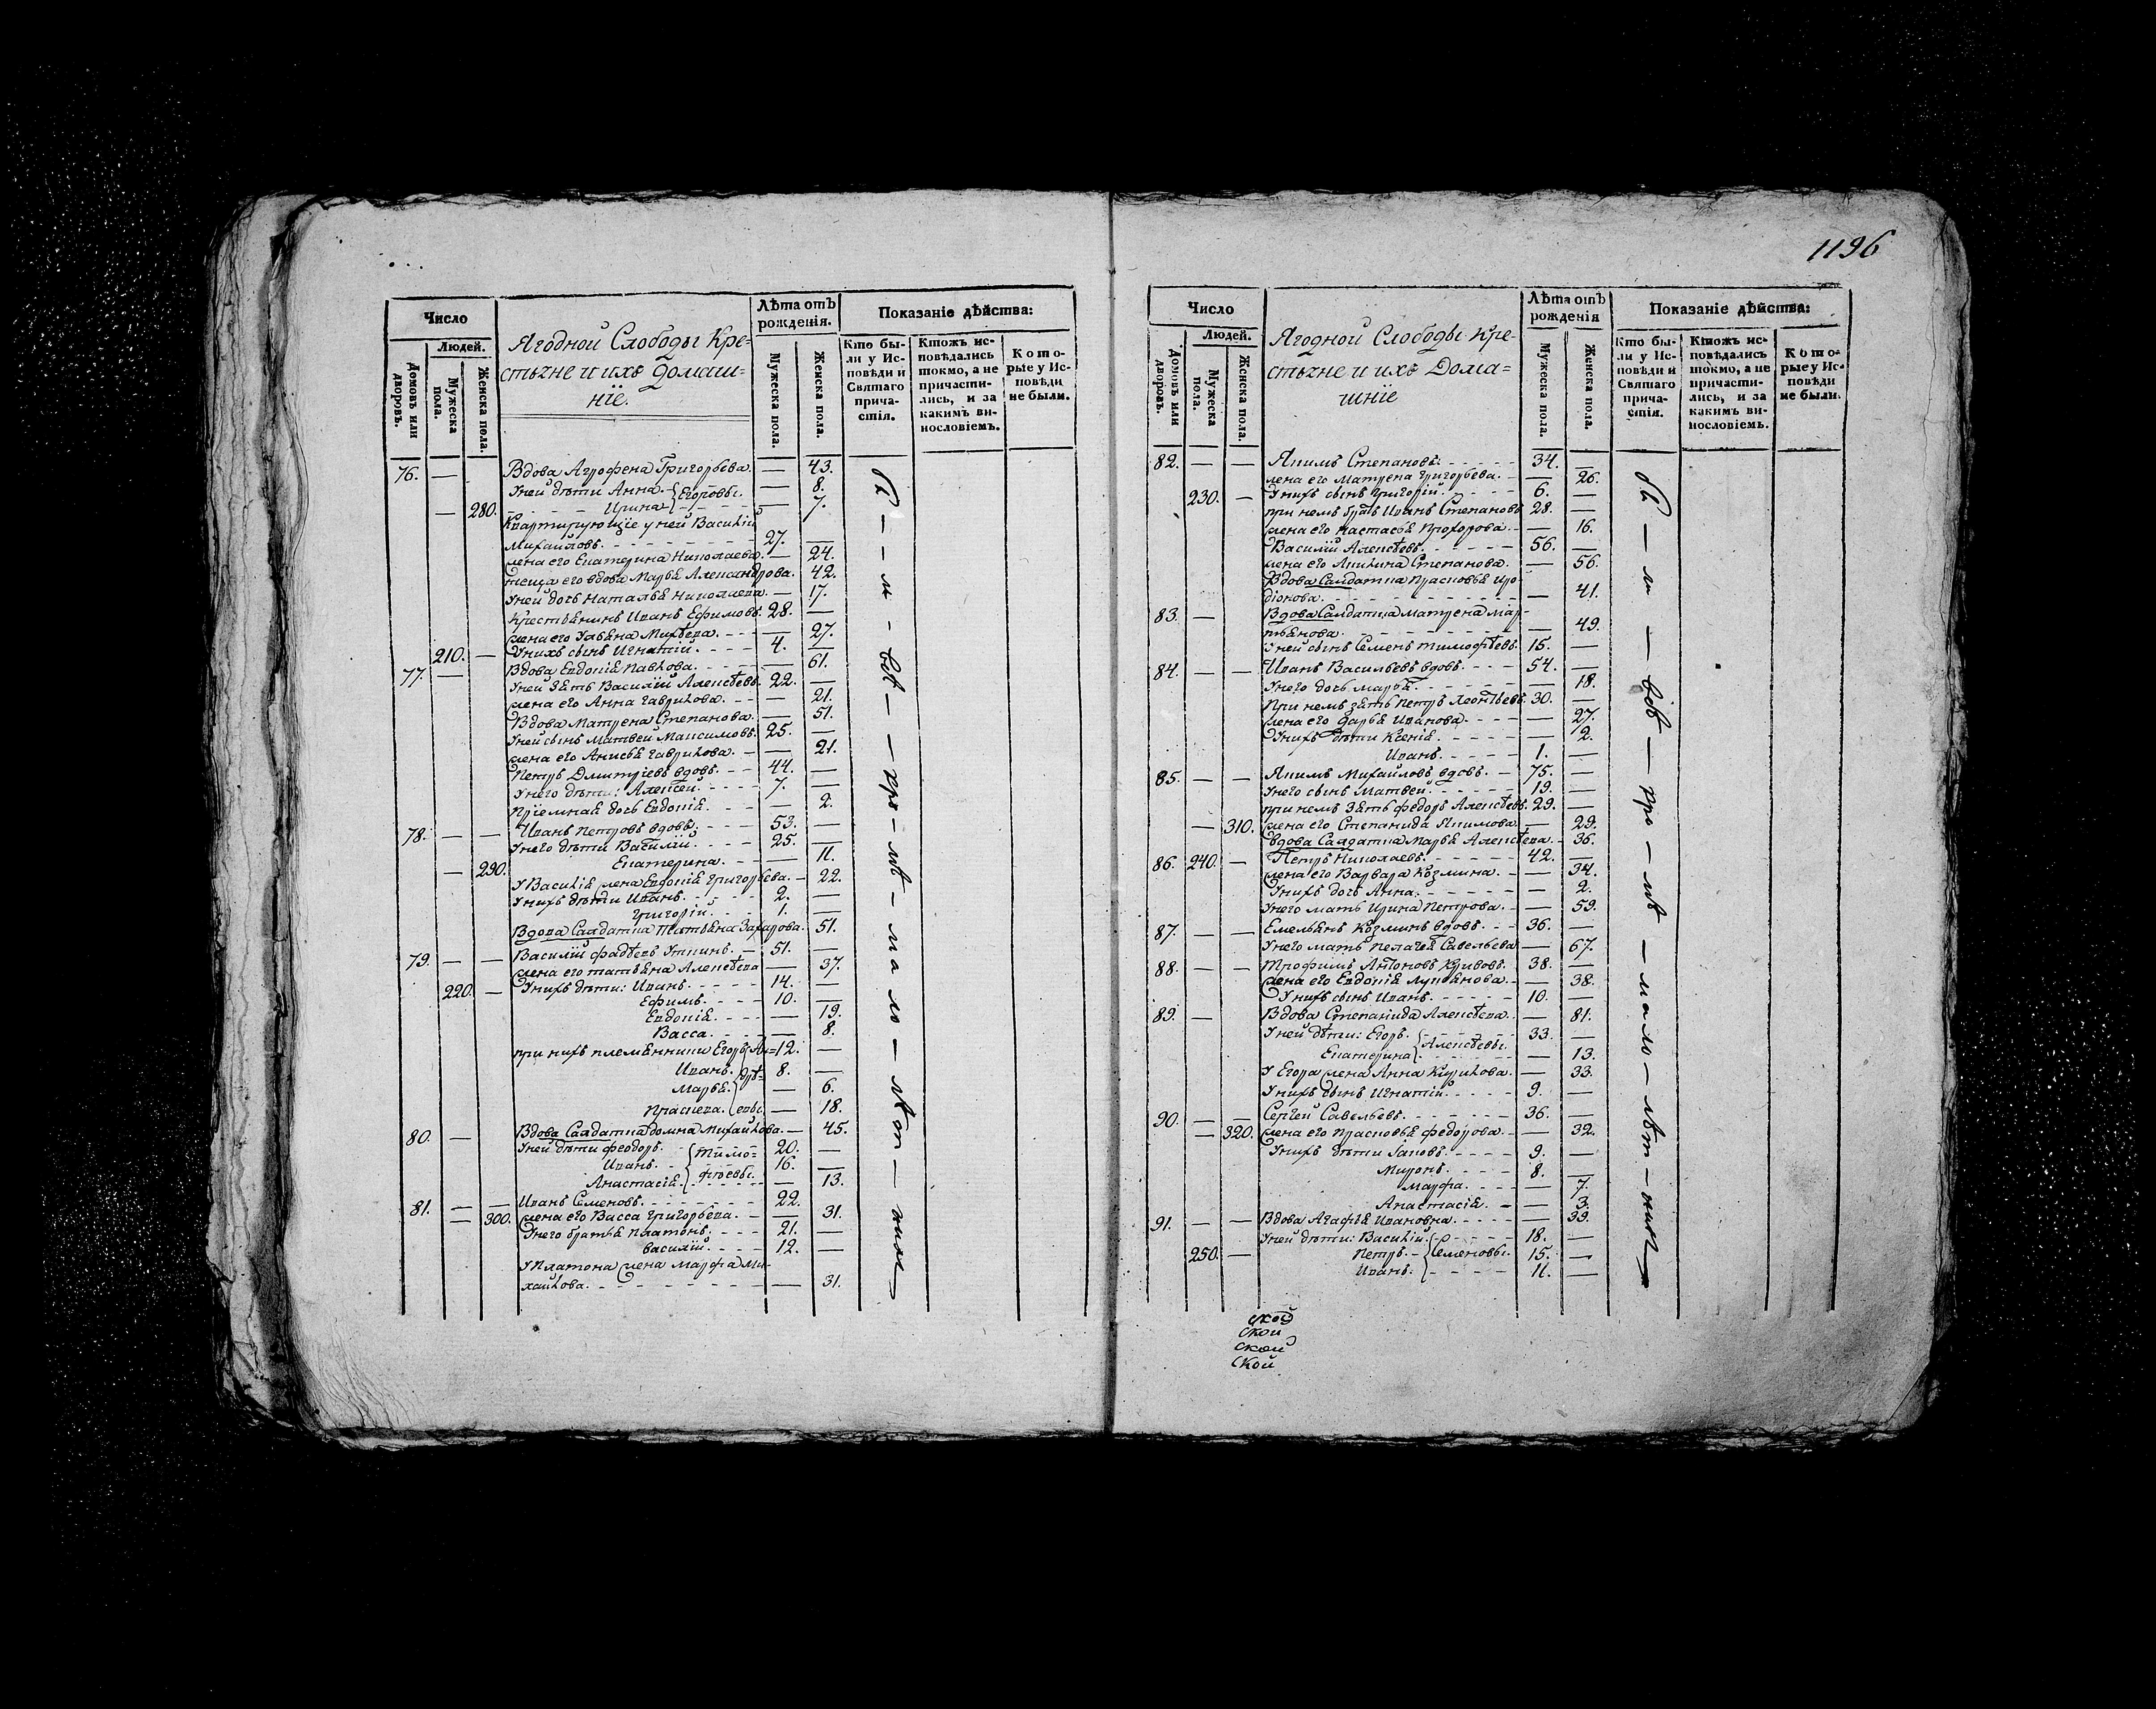 1196
Число
Людей.
Домовъ или дворовъ.
Мужеска пола.
Женска пола.
Ягодной Слободы Кре=
стьяне и ихъ домаш=
ніе.
Лѣта отъ
рожденія.
Мужеска пола.
Женска пола.
Показаніе дѣйства:
Кто бы-
ли у Ис-
повѣди и
Святаго
прича-
стія.
Ктожъ ис-
повѣдались
токмо, а не
причасти-
лись, и за
какимъ ви-
нословіемъ.
Кото-
рые у Ис-
повѣди
не были.
76. — Вдова Агрофена Григорьева. — 43.
У ней дѣти Анна. Егоровы. — 8.
— 280. Ирина — 7.
Квартирующіе у ней Василій
Михайловъ. 27. —
жена его Екатерина Николаева. — 24.
теща его вдова Марья Александрова. 42.
У ней дочь Наталья Николаева. — 17.
Крестьянинъ Иванъ Ефимовъ. 28. —
жена его Ульяна Михѣева. — 27.
210. — У нихъ сынъ Игнатій. 4. —
77. — Вдова Евдокія Павлова. — 61.
У ней зять Василій Алексѣевъ. 22. —
жена его Анна Гаврилова. — 21.
Вдова Матрена Степанова. — 51.
У ней сынъ Матвей Максимовъ. 25. —
жена его Анисья Гаврилова. — 21.
Петръ Дмитріевъ вдовъ. 44. —
У него дѣти: Алексей. 7. —
Пріемная дочь Евдокія. — 2.
78. — — Иванъ Петровъ вдовъ. 53. —
У него дѣти Василій. 25. —
— 290. Екатерина. — 11.
У Василія жена Евдокія Григорьева. — 22.
У нихъ дѣти Иванъ. 2. —
Григорій. 1. —
Вдова Салдатка Татьяна Захарова. 51.
79. — — Василій Фадѣевъ Уткинъ. — 51. —
жена его Татьяна Алексѣева — 37.
220. — У нихъ дѣти: Иванъ. 14. —
Ефимъ. 10. —
Евдокія. — 19.
Васса. — 8.
при нихъ племянники Егоръ Ан= 12. —
Иванъ. дрѣ= 8. —
Марья. — 6.
Праскева. евы. — 18.
80. — Вдова Салдатка Домна Михайлова. — 45.
У ней дѣти Феодоръ. Тимо= 20. —
Иванъ. фѣевы. 16. —
Анастасія. — 13.
81. — — Иванъ Семеновъ. 22.
— 300. жена его Васса Григорьева. — 31.
У него братья Платонъ. 21. —
Василій. 12. —
У Платона жена Марфа Ми-
хайлова. — 31.
Число
Людей.
Домовъ или дворовъ.
Мужеска пола.
Женска пола.
Ягодной Слободы Кре-
стьяне и ихъ Дома=
шніе
Лѣта отъ
рожденія
Мужеска пола.
Женска пола.
Показаніе дѣйства:
Кто бы-
ли у Ис-
повѣди и
Святаго
прича-
стія.
Ктожъ ис-
повѣдались
токмо, а не
причасти-
лись, и за
какимъ ви-
нословіемъ.
Кото-
рые у Ис-
повѣди
не были.
82. — — Якимъ Степановъ. 34. —
жена его Матрена Григорьева. — 26.
230. — У нихъ сынъ Григорій. 6. —
при немъ братъ Иванъ Степановъ 28. —
жена его Настасья Прохорова. — 16.
Василій Алексѣевъ. 56. —
жена его Акилина Степанова. — 56.
Вдова Салдатка Прасковья Иро
діонова. — 41.
83. — Вдова Салдатка Матрена Мар-
тьянова. — 49.
У ней сынъ Семенъ Тимофѣевъ. 15. —
84. — — Иванъ Васильевъ вдовъ. 54. —
У него дочь Марья. — 18.
При немъ зять Петръ Леонтьевъ. 30. —
жена его Дарья Иванова. — 27.
У нихъ дѣти Ксенія. — 2.
Иванъ. 1. —
85. — — Якимъ Михайловъ вдовъ. 75. —
У него сынъ Матвей. 19. —
при немъ зять Федоръ Алексѣевъ. 29. —
— 310. жена его Степанида Якимова. — 29.
вдова Салдатка Марья Алексѣева. — 36.
86. 240. — Петръ Николаевъ. 42. —
жена его Варвара Козмина. — 34.
У нихъ дочь Анна. — 2.
У него мать Ирина Петрова. — 59.
87. — — Емельянъ Козминъ вдовъ. 36. —
У него мать Пелагея Савельева — 67.
88. — — Трофимъ Антоновъ Кривовъ. 38. —
жена его Евдокія Лукьянова. — 38.
У нихъ сынъ Иванъ. 10. —
89. — Вдова Степанида Алексѣева. — 81.
У ней дѣти: Егоръ. 33. —
Екатерина Алексѣевы. — 13.
У Егора жена Анна Кирилова. — 33.
У нихъ сынъ Игнатій. 9. —
90. — — Сергей Савельевъ. 36. —
— 320. жена его Прасковья Федорова. — 32.
У нихъ дѣти Іаковъ. 9. —
Миронъ. 8. —
Марфа. — 7.
Анастасія. — 3.
91. — — Вдова Агафья Ивановна. — 39.
У ней дѣти: Василій. 18. —
250. — Петръ. Семеновы. 15. —
Иванъ. 11. —
ской
ской
ской
ской